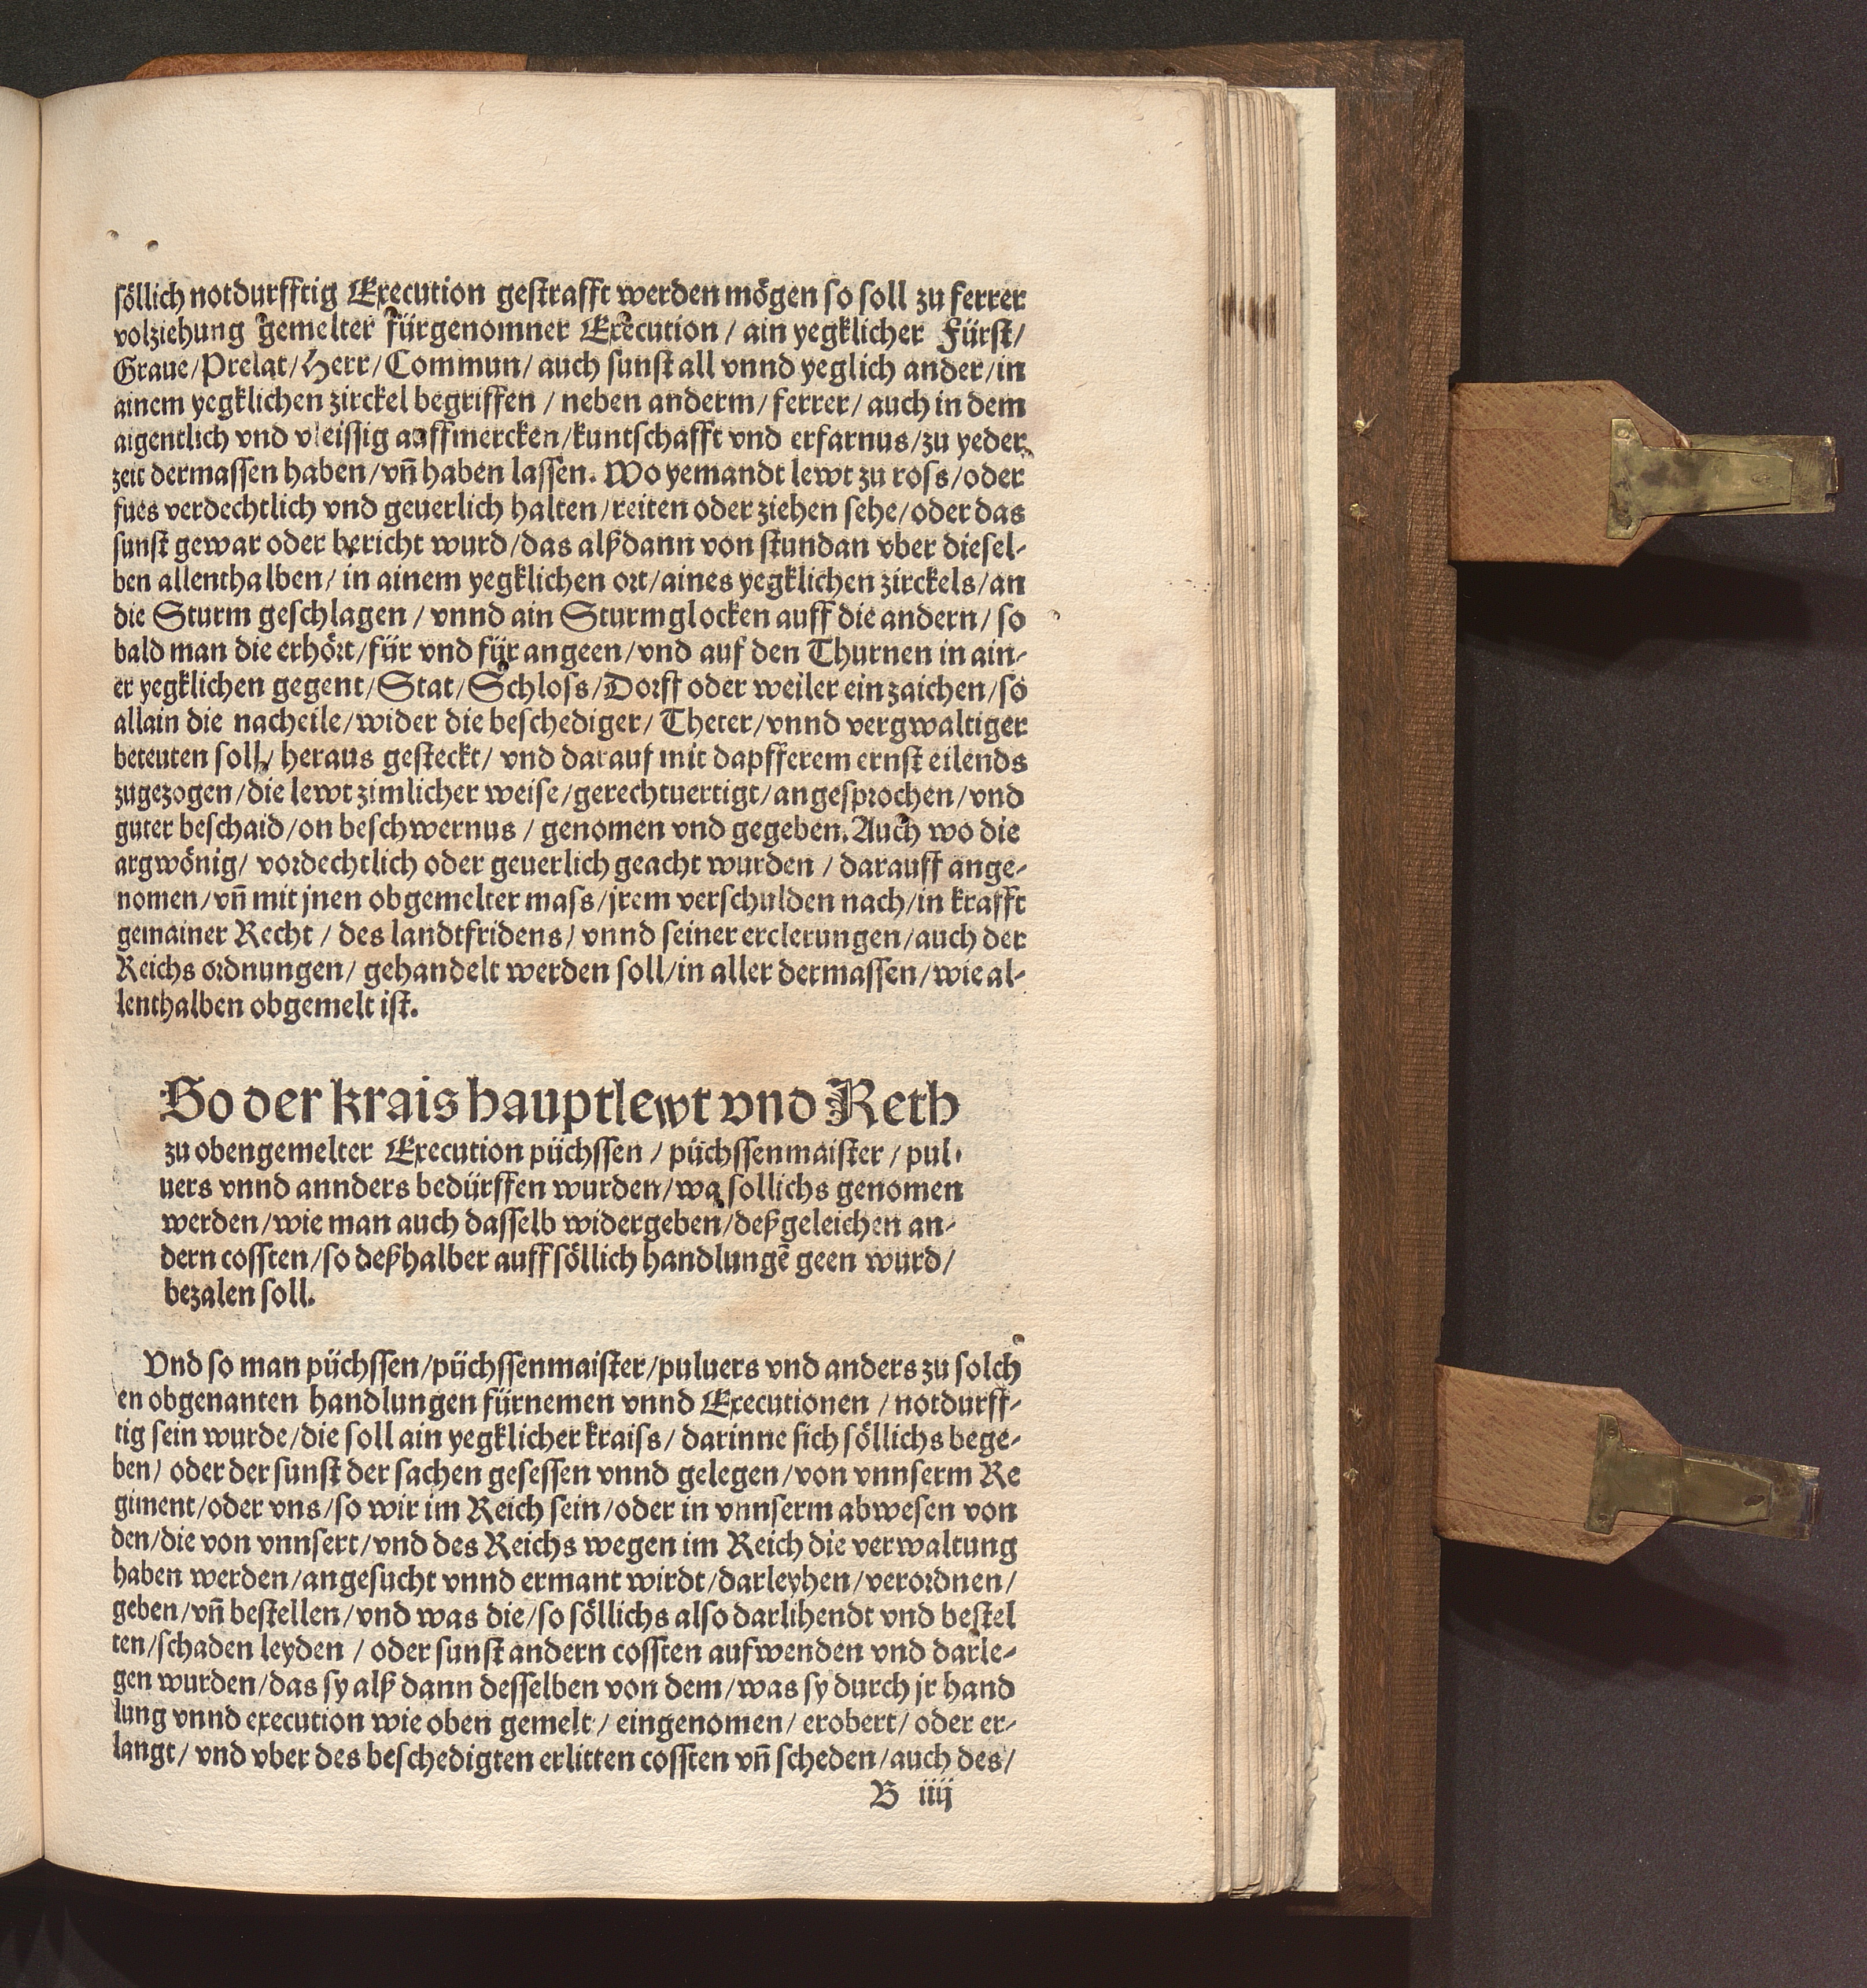 söllich notdurfftig Execution gestrafft werden mögen so soll zu ferrer
volziehung gemelter fürgenomner Execution / ain yegklicher Fürst /
Graue / Prelat / Herr / Commun / auch sunst all vnnd yeglich ander / in
ainem yegklichen zirckel begriffen / neben anderm / ferrer / auch in dem
aigentlich vnd vleissig auffmercken / kuntschafft vnd erfarnus / zu yeder
zeit dermassen haben / vñ haben lassen. Wo yemandt lewt zu ross / oder
fues verdechtlich vnd geuerlich halten / reiten oder ziehen sehe / oder das
sunst gewar oder bericht wurd / das alßdann von stundan vber diesel-
ben allenthalben / in ainem yegklichen ort / aines yegklichen zirckels / an
die Sturm geschlagen / vnnd ain Sturmglocken auff die andern / so
bald man die erhört / für vnd für angeen / vnd auf den Thurnen in ain-
er yegklichen gegent / Stat / Schloss / Dorff oder weiler ein zaichen / so
allain die nacheile / wider die beschediger / Theter / vnnd vergwaltiger
beteuten soll / heraus gesteckt / vnd darauf mit dapfferem ernst eilends
zugezogen / die lewt zimlicher weise / gerechtuertigt / angesprochen / vnd
guter beschaid / on beschwernus / genomen vnd gegeben. Auch wo die
argwönig / vordechtlich oder geuerlich geacht wurden / darauff ange-
nomen / vñ mit jnen obgemelter mass / jrem verschulden nach / in krafft
gemainer Recht / des landtfridens / vnnd seiner erclerungen / auch der
Reichs ordnungen / gehandelt werden soll / in aller dermassen / wie al-
lenthalben obgemelt ist.
So der krais hauptlewt vnd Reth
zu obengemelter Execution püchssen / püchssenmaister / pul-
uers vnnd annders bedürffen wurden / wa sollichs genomen
werden / wie man auch dasselb widergeben / deßgeleichen an-
dern cossten / so deßhalber auff söllich handlungẽ geen wurd /
bezalen soll.
Vnd so man püchssen / püchssenmaister / puluers vnd anders zu solch
en obgenanten handlungen fürnemen vnnd Executionen / notdurff-
tig sein wurde / die soll ain yegklicher kraiss / darinne sich söllichs bege-
ben / oder der sunst der sachen gesessen vnnd gelegen / von vnnserm Re
giment / oder vns / so wir im Reich sein / oder in vnnserm abwesen von
den / die von vnnsert / vnd des Reichs wegen im Reich die verwaltung
haben werden / angesucht vnnd ermant wirdt / darleyhen / verordnen /
geben / vñ bestellen / vnd was die / so söllichs also darlihendt vnd bestel
ten / schaden leyden / oder sunst andern cossten aufwenden vnd darle-
gen wurden / das sy alß dann desselben von dem / was sy durch jr hand
lung vnnd execution wie oben gemelt / eingenomen / erobert / oder er-
langt / vnd vber des beschedigten erlitten cossten vñ scheden / auch des /
B iiij